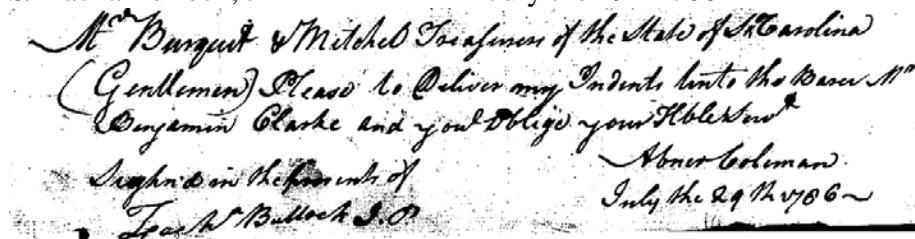 Mrs Burquit & Mitchel Treasurers of the State of So Carolina
(Gentlemen) Please to Deliver my Indents unto the Barer Mr
Benjamin Clarke and youl Oblige your Hble Servt
Abner Coleman
Sighn'd in the presents of
July the 29th 1786
Zachr Bullock J.P